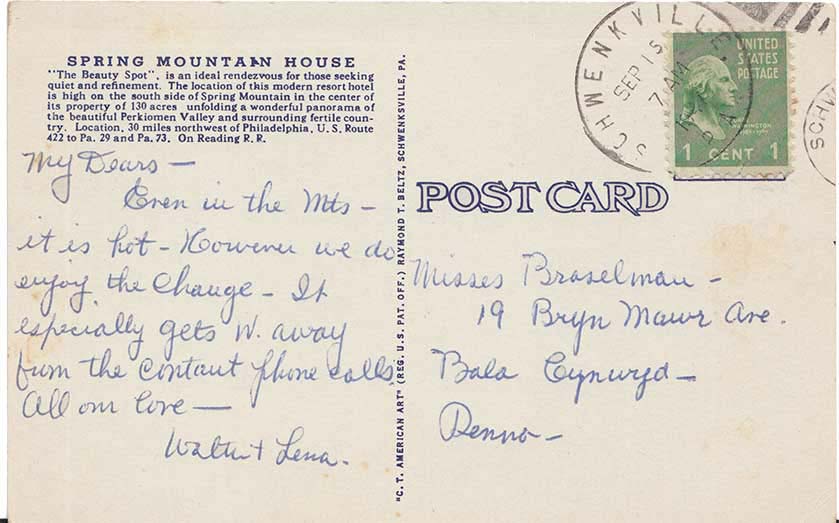 SPRING MOUNTAIN HOUSE
"The Beauty Spot", is an ideal rendezvous for those seeking
quiet and refinement. The location of this modern resort hotel
is high on the south side of Spring Mountain in the center of
its property of 130 acres unfolding a wonderful panorama of
the beautiful Perkiomen Valley and surrounding fertile coun-
try. Location, 30 miles northwest of Philadelphia, U. S. Route
422 to Pa. 29 and Pa. 73. On Reading R. R.
My Dears –
Even in the Mts –
it is hot – However we do
enjoy the Change – It
especially gets W. away
from the contant phone calls.
All our love –
Walter + Lena.
"C. T. AMERICAN ART" (REG. U. S. PAT. OFF.) RAYMOND T. BELTZ, SCHWENKSVILLE, PA.
POST CARD
SCHWENKVILLE,
SEP 15
7 AM
PA
UNITED
STATES
POSTAGE
WASHINGTON
1 CENT 1
SCHW
Misses Braselman –
19 Bryn Mawr Ave.
Bala Cynwyd –
Penna –